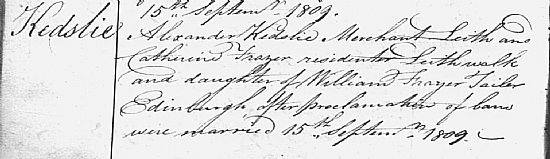 15th Septemr 1809.
Kedslie
Alexander Kedslie Merchant Leith and
Catherine Frazer residenter Leith walk
and daughter of William Frazer Tailer
Edinburgh after proclamation of bans
were married 15th Septemr 1809.